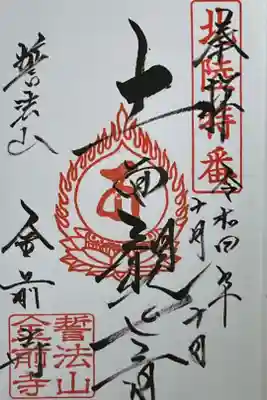 奉拝
北陸特番
令和四年
十月十日
十一面観世音
誓法山
金前寺
誓法山
金前寺